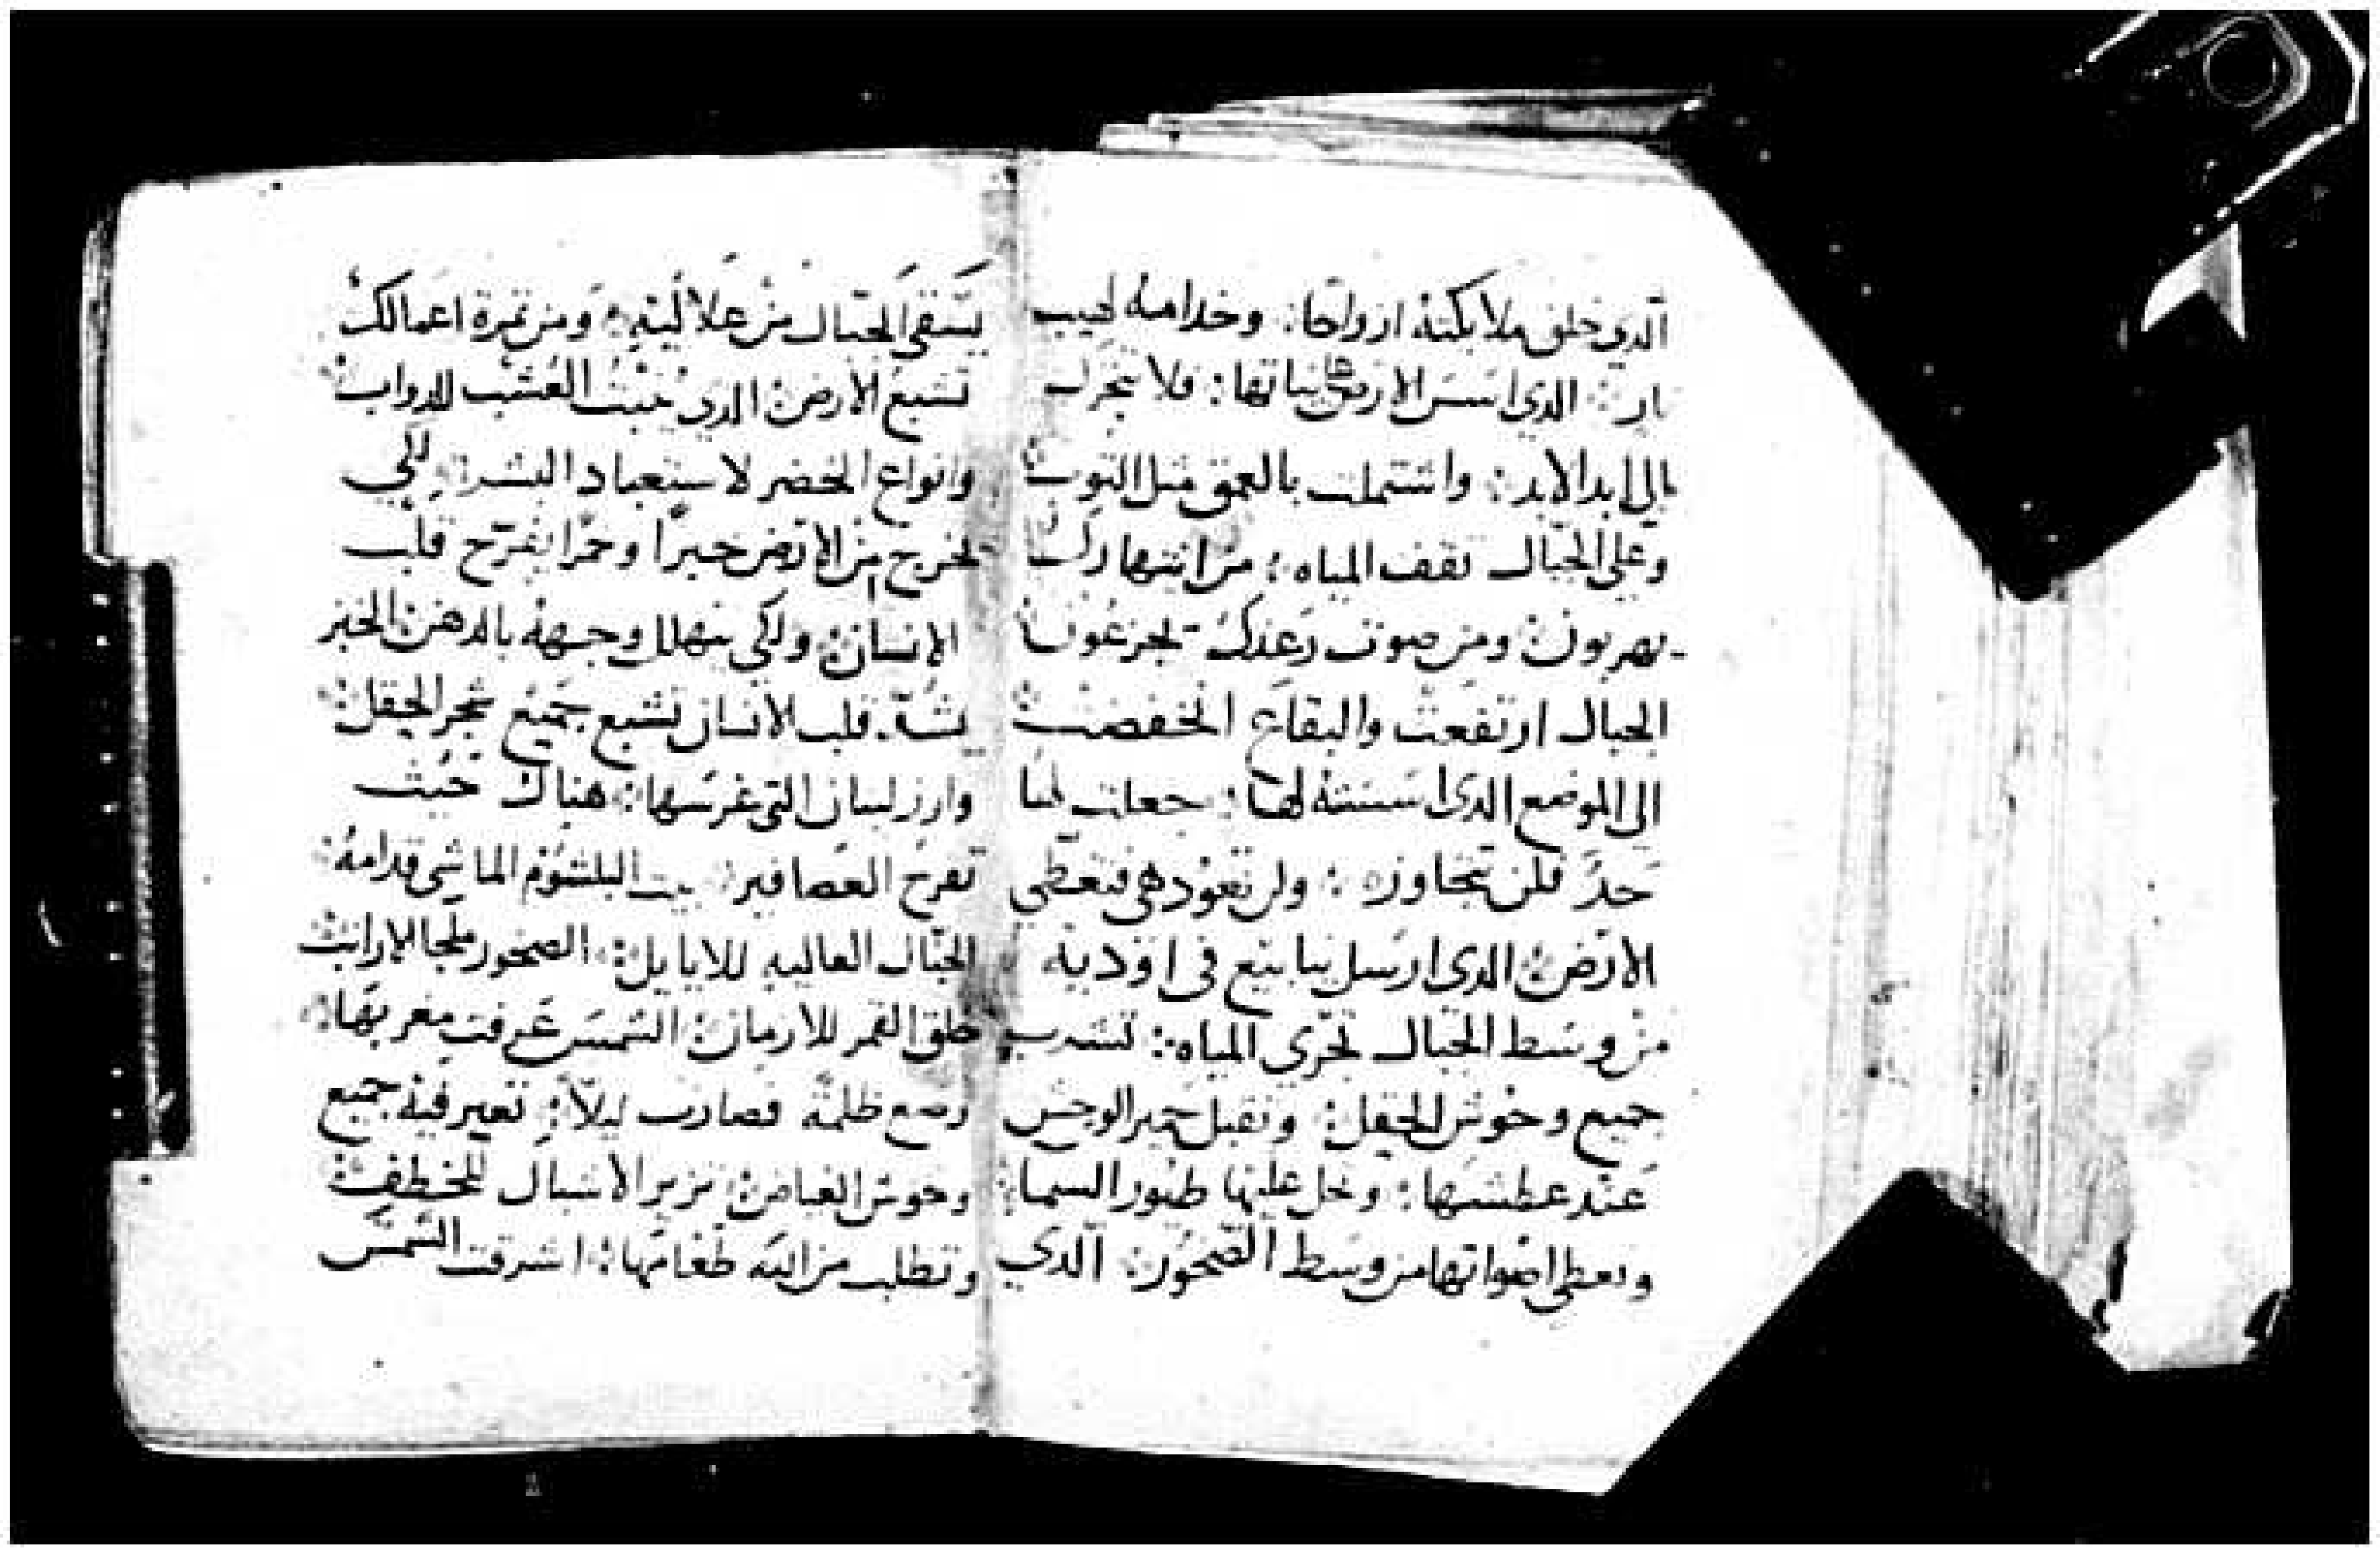 الدي خلق ملايكته ارواحًا: وخدامه لهيب
نار: الدي اسس الارض على ثباتها: فلا تتحرك
الى ابد الابد: واشتملت بالعمق مثل التوب:
وعلى الجبال تقف المياه: من انتهارك
يهربون: ومن صوت رعدك يجزعون:
الجبال ارتفعت والبقاع انخفضت:
الى الموضع الدى اسسته لها: جعلت لها
حدَّ فلن تتجاوزه: ولن تعود هى فتغطي
الارض: الدى ارسل ينابيع فى اوديه
من وسط الجبال تجري المياه: تشرب
جميع وحوش الحقل: وتقبل حمير الوحش
عند عطشها: وتحل عليها طيور السما:
وتعطى اصواتها من وسط الصخور: الدي
يسقى الجبال من علاليه: ومن تمرة اعمالك
تشبع الارض: الدي ينبت العشب للدواب:
وانواع الخضر لاستعباد البشر: لكي
تخرج من الارض خبزًا وخمرًا يفرح قلب
الانسان: ولكي يتهلل وجهه بالدهن: الخبز
يشدّ قلب الانسان تشبع جميع شجر الحقل:
وارز لبنان التى غرسها: هناك حيث
تفرح العصافير: بيت البلشوم الماشي قدامه:
الجبال العاليه للايايل: الصخور ملجا للارانب:
خلق القمر للازمان: الشمس عرفت مغربها:
وضع ظلمة فصارت ليلاً: تعبر فيه جميع
وحوش الغياض: تزير الاشبال للخطف:
وتطلب من الله طعامها: اشرقت الشمس